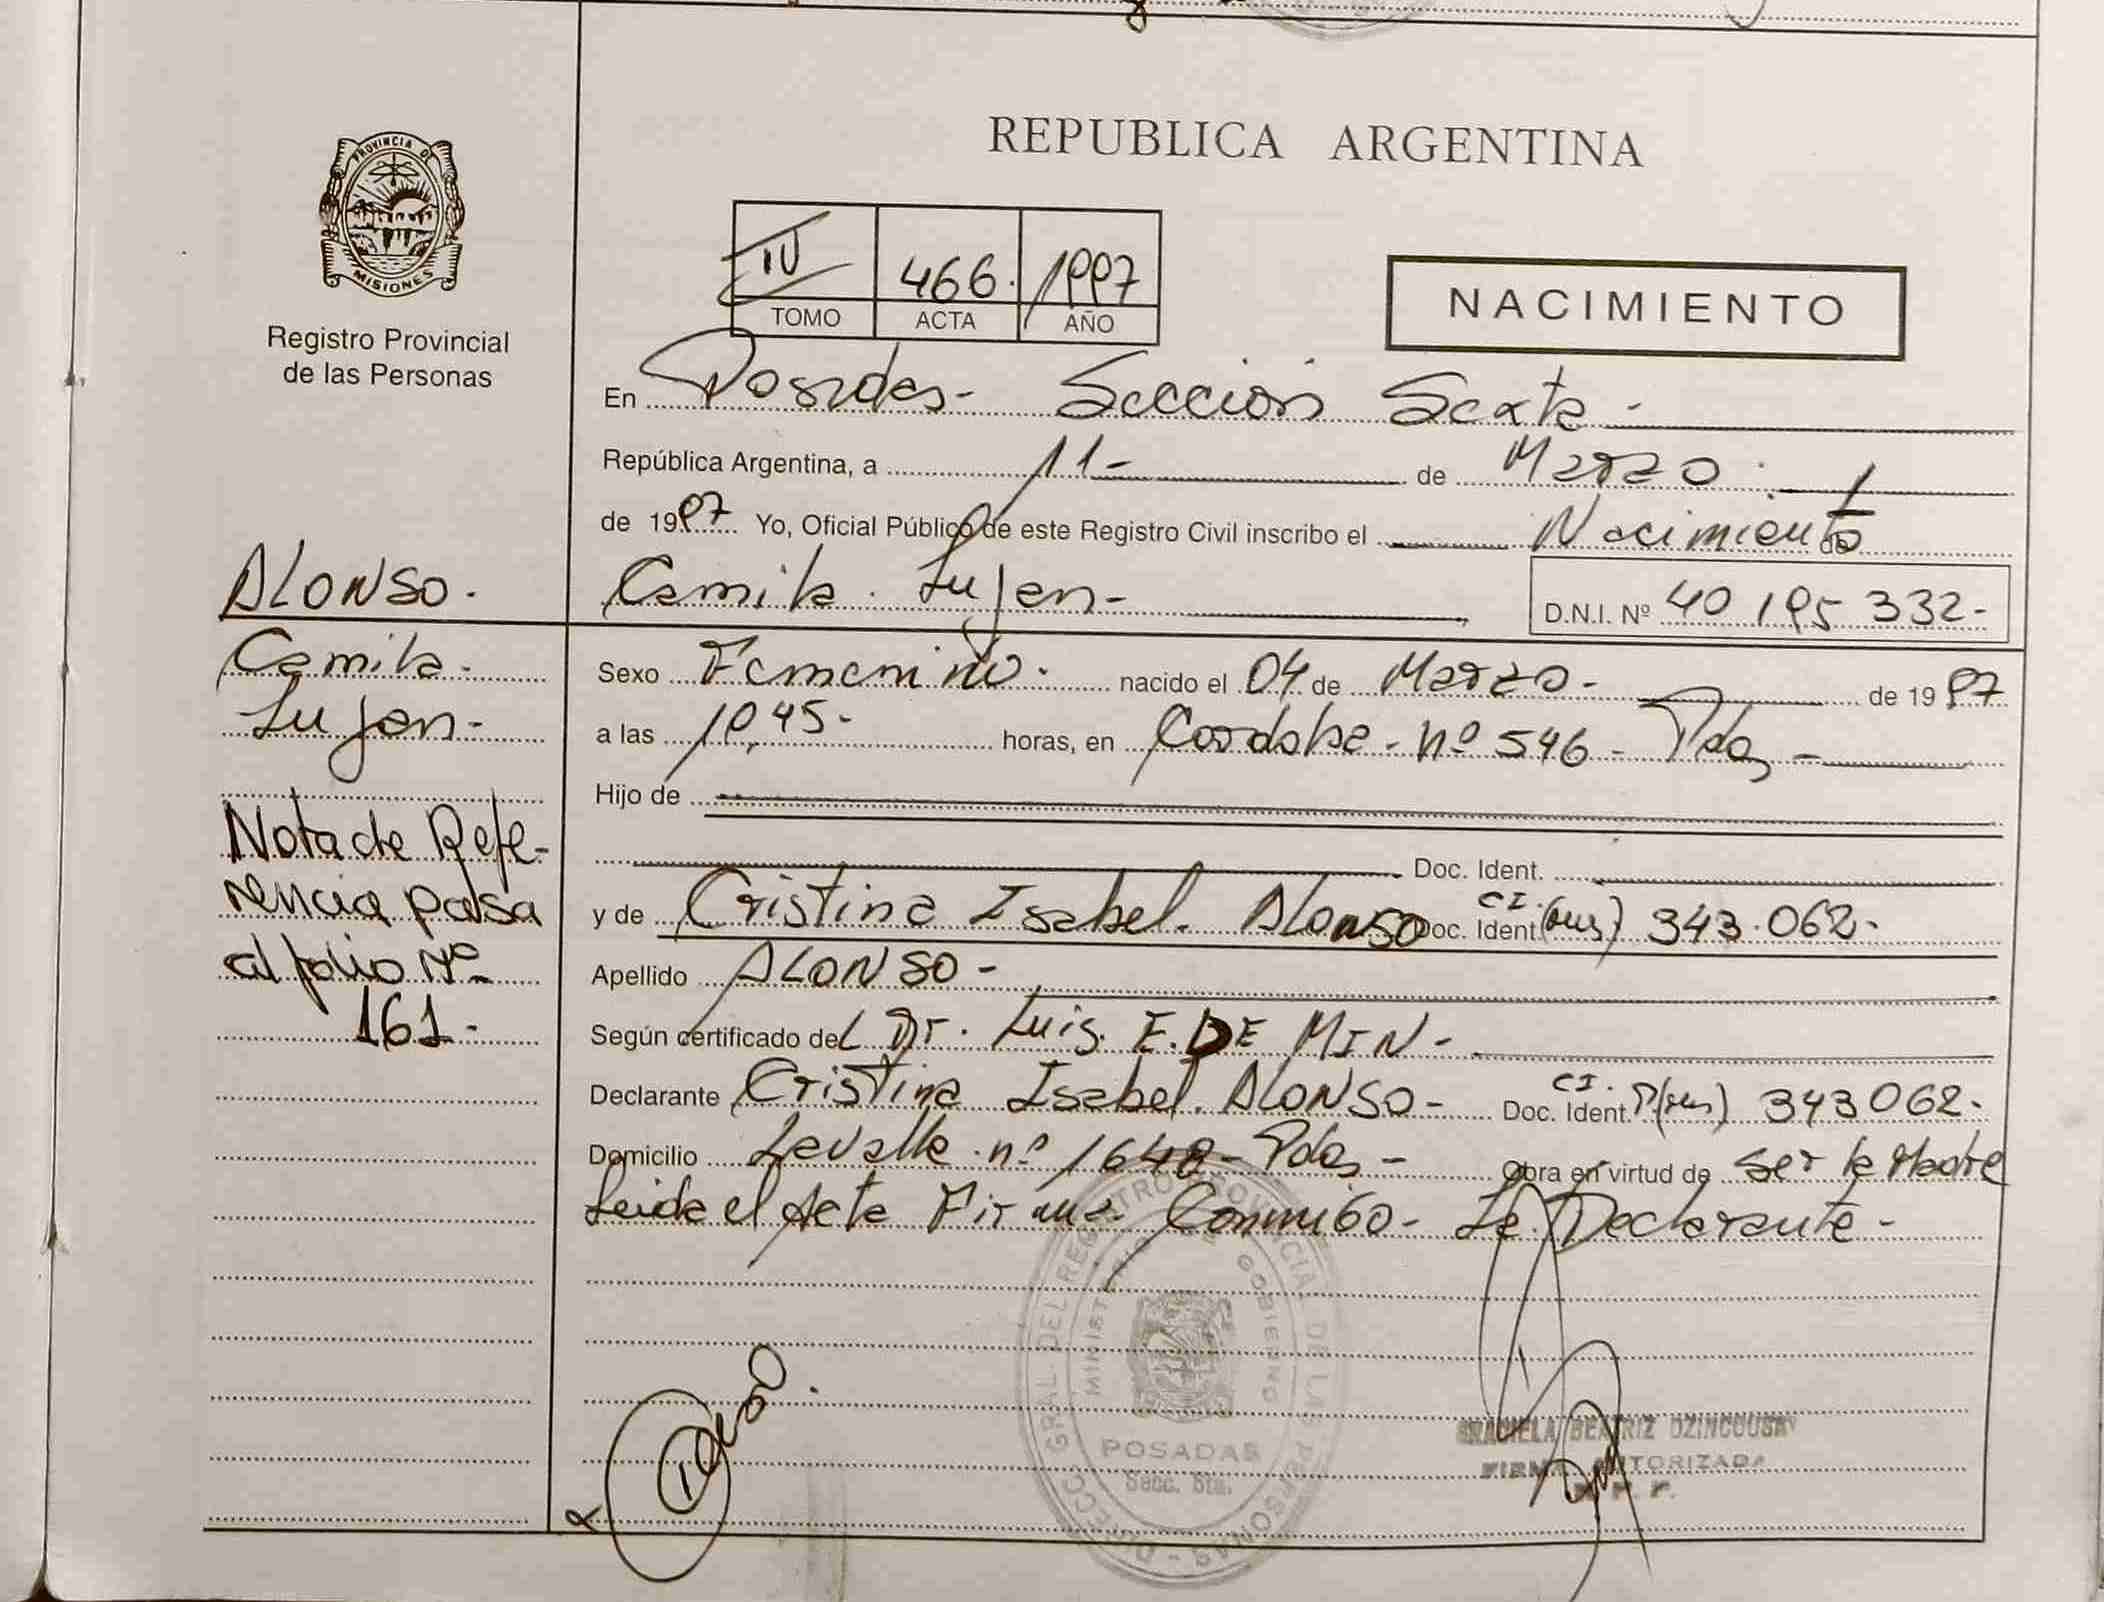 PROVINCIA DE
MISIONES
Registro Provincial
de las Personas
REPUBLICA ARGENTINA
IV 466. 1997
TOMO ACTA AÑO
NACIMIENTO
En Posadas- Sección Sexta-
República Argentina, a 11- de Marzo
de 1997 Yo, Oficial Público de este Registro Civil inscribo el Nacimiento de
Camila Lujan- D.N.I. Nº 40 195 332-
Sexo Femenino. nacido el 04 de Marzo- de 1997
a las 10,45- horas, en Cordoba- nº 546- Pdas-
Hijo de
Doc. Ident.
y de Cristina Isabel. Alonso Doc. Ident. CI. 343.062-
Apellido ALONSO-
Según certificado del Dr. Luis. E. DE MIN-
Declarante Cristina Isabel. ALONSO- Doc. Ident. CI. 343062-
Domicilio Lavalle nº 1640- Pdas- Obra en virtud de ser la Madre
Leida el Acta Firma Conmigo- La Declarante-
ALONSO.
Camila-
Lujan-
Nota de Refe-
rencia pasa
al folio Nº
161-
DIRECC. GRAL. DEL REGISTRO PROVINCIAL DE LAS PERSONAS
MINISTERIO GOBIERNO
POSADAS
Secc. 6ta.
GRACIELA BEATRIZ
FIRMA AUTORIZADA